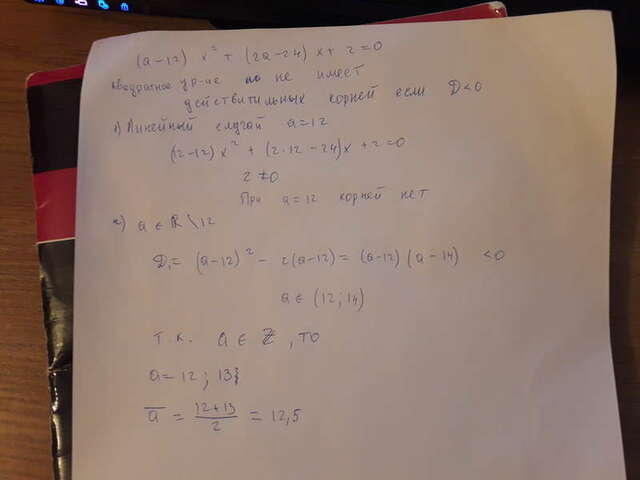 (a-12) x² + (2a-24) x + 2 = 0
квадратное ур-ие не имеет
действительных корней если D<0
1) Линейный случай a=12
(12-12) x² + (2·12-24)x + 2 = 0
2 ≠ 0
При a=12 корней нет
2) a ∈ ℝ \ 12
D₁ = (a-12)² - 2(a-12) = (a-12) (a-14) <0
a ∈ (12; 14)
т.к. a ∈ ℤ, то
a = 12; 13}
a̅ = (12+13)/2 = 12,5